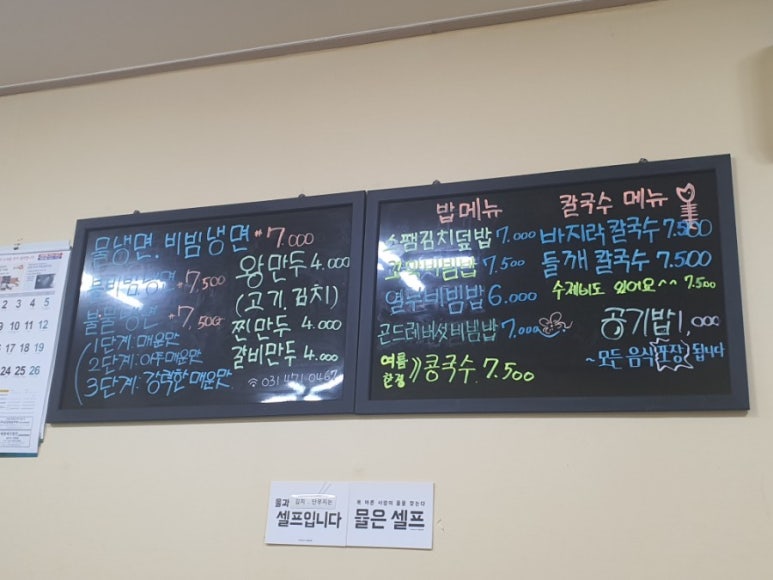 물냉면.비빔냉면 #7.000
물비빔냉면 #7.500
불물냉면 #7.500
1단계:매운맛
2단계:아주매운맛
3단계:강력한매운맛
왕만두 4.000
(고기.김치)
찐만두 4.000
갈비만두 4.000
031 471 0467
밥메뉴
스팸김치덮밥 7.000
비빔밥 7.500
열무비빔밥 6.000
곤드레버섯비빔밥 7.000
여름한정 콩국수. 7.500
칼국수 메뉴
바지락칼국수 7.500
들깨 칼국수 7.500
수제비도 있어요^^ 7.500
공기밥 1,000
~모든 음식포장 됩니다
2 3 4 5
9 10 11 12
17 18 19
24 25 26
물과 김치.단무지는
셀프입니다
목 마른 사람이 물을 찾는다
물은 셀프